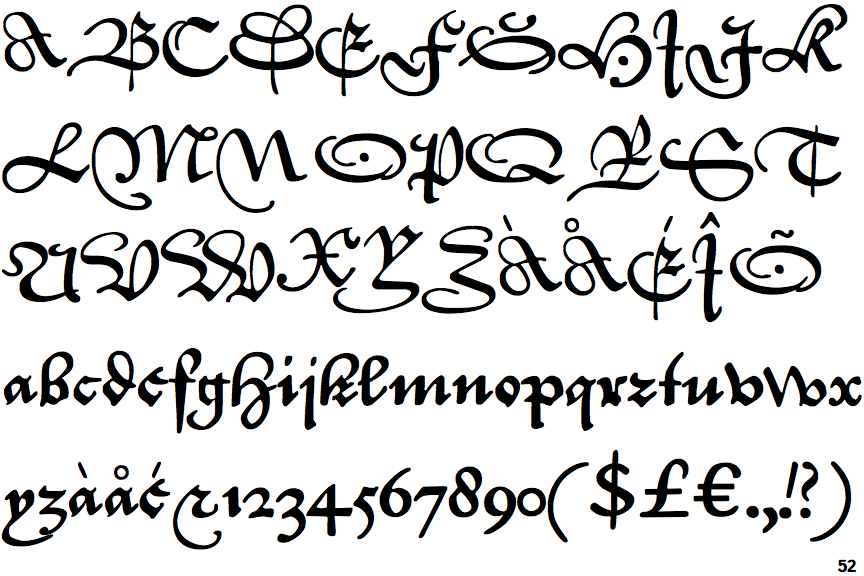 ABCDEFGHIJK
LMNOPQRST
UVWXYZÀÅÉÎÕ
abcdefghijklmnopqrstuvwx
yzàåé&1234567890($£€.,!?)
52